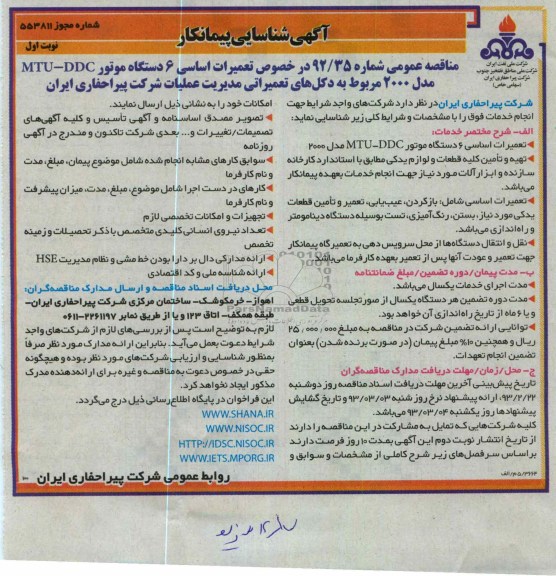 شماره مجوز ۵۵۳۸۱۱
آگهی شناسایی پیمانکار
نوبت اول
شرکت ملی نفت ایران
شرکت ملی مناطق نفتخیز جنوب
شرکت پیرا حفاری ایران
(سهامی خاص)
مناقصه عمومی شماره ۹۲/۳۵ در خصوص تعمیرات اساسی ۶ دستگاه موتور MTU-DDC
مدل ۲۰۰۰ مربوط به دکل‌های تعمیراتی مدیریت عملیات شرکت پیراحفاری ایران
شرکت پیراحفاری ایران در نظر دارد شرکت‌های واجد شرایط جهت
انجام خدمات فوق را با مشخصات و شرایط کلی زیر شناسایی نماید:
الف- شرح مختصر خدمات:
تعمیرات اساسی ۶ دستگاه موتور MTU-DDC مدل ۲۰۰۰
تهیه و تأمین کلیه قطعات و لوازم یدکی مطابق با استاندارد کارخانه
سازنده و ابزارآلات مورد نیاز جهت انجام خدمات بعهده پیمانکار
می‌باشد.
تعمیرات اساسی شامل: بازکردن، عیب‌یابی، تعمیر و تأمین قطعات
یدکی مورد نیاز، بستن، رنگ‌آمیزی، تست بوسیله دستگاه دینامومتر
و راه‌اندازی می‌باشد.
نقل و انتقال دستگاه‌ها از محل سرویس دهی به تعمیرگاه پیمانکار
جهت تعمیر و عودت آنها پس از تعمیر بعهده کارفرما می‌باشد.
ب- مدت پیمان/دوره تضمین/مبلغ ضمانتنامه
مدت اجرای خدمات یکسال می‌باشد.
مدت دوره تضمین هر دستگاه یکسال از صورتجلسه تحویل قطعی
و یا ۶ ماه از تاریخ راه‌اندازی آن خواهد بود.
توانایی ارائه تضمین شرکت در مناقصه به مبلغ ۲۵,۰۰۰,۰۰۰
ریال و همچنین ۱۰% مبلغ پیمان (در صورت برنده شدن) بعنوان
تضمین انجام تعهدات.
ج- محل/زمان/مهلت دریافت مدارک مناقصه‌گران
تاریخ پیش‌بینی آخرین مهلت دریافت اسناد مناقصه روز دوشنبه
۹۳/۲/۲۲، ارائه پیشنهاد نرخ روز شنبه ۹۳/۰۳/۰۳ و تاریخ گشایش
پیشنهادها روز یکشنبه ۹۳/۰۳/۰۴ می‌باشد.
کلیه شرکت‌هایی که تمایل به مشارکت در این مناقصه را دارند
از تاریخ انتشار نوبت دوم این آگهی بمدت ۱۰ روز فرصت دارند
براساس سرفصل‌های زیر شرح کاملی از مشخصات و سوابق و
امکانات خود را به نشانی ذیل ارسال نمایند.
تصویر مصدق اساسنامه و آگهی تأسیس و کلیه آگهی‌های
تصمیمات/تغییرات و... بعدی شرکت تاکنون و مندرج در آگهی
روزنامه
سوابق کارهای مشابه انجام شده شامل موضوع پیمان، مبلغ، مدت
و نام کارفرما
کارهای در دست اجرا شامل موضوع، مبلغ، مدت، میزان پیشرفت
و نام کارفرما
تجهیزات و امکانات تخصصی لازم
تعداد نیروی انسانی کلیدی متخصص با ذکر تحصیلات و زمینه
تخصص
ارائه مدارکی دال بر دارا بودن خط مشی و نظام مدیریت HSE
ارائه شناسه ملی و کد اقتصادی
محل دریافت اسناد مناقصه و ارسال مدارک مناقصه‌گران:
اهواز- خرمکوشک- ساختمان مرکزی شرکت پیراحفاری ایران-
طبقه همکف- اتاق ۱۲۳ و یا از طریق نمابر ۲۲۶۱۱۹۷-۰۶۱۱
لازم به توضیح است پس از بررسی‌های لازم از شرکت‌های واجد
شرایط دعوت بعمل می‌آید. بنابراین ارائه مدارک مورد نظر صرفاً
بمنظور شناسایی و ارزیابی شرکت‌های مورد نظر بوده و هیچگونه
حقی در خصوص دعوت به مناقصه و غیره برای ارائه‌دهنده مدرک
مذکور ایجاد نخواهد کرد.
این فراخوان در پایگاه اطلاع‌رسانی ذیل درج می‌گردد.
WWW.SHANA.IR
WWW.NISOC.IR
HTTP://IDSC.NISOC.IR
WWW.IETS.MPORG.IR
روابط عمومی شرکت پیراحفاری ایران
ParsNamadData